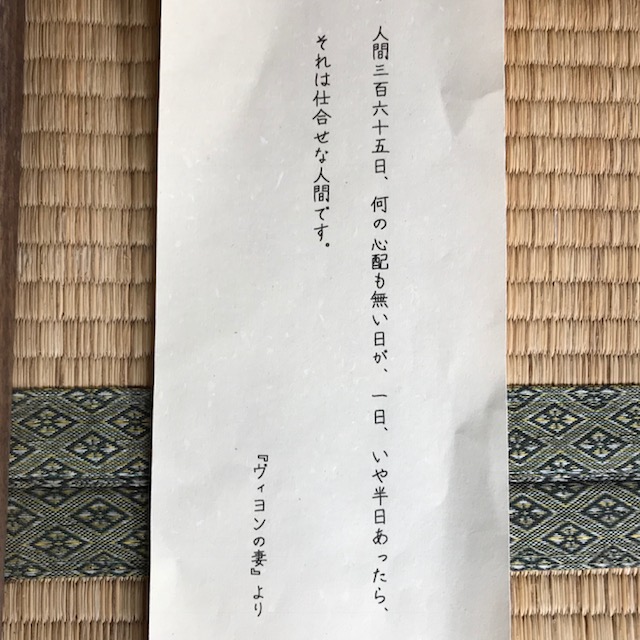 人間三百六十五日、何の心配も無い日が、一日、いや半日あったら、
それは仕合せな人間です。
『ヴィヨンの妻』より